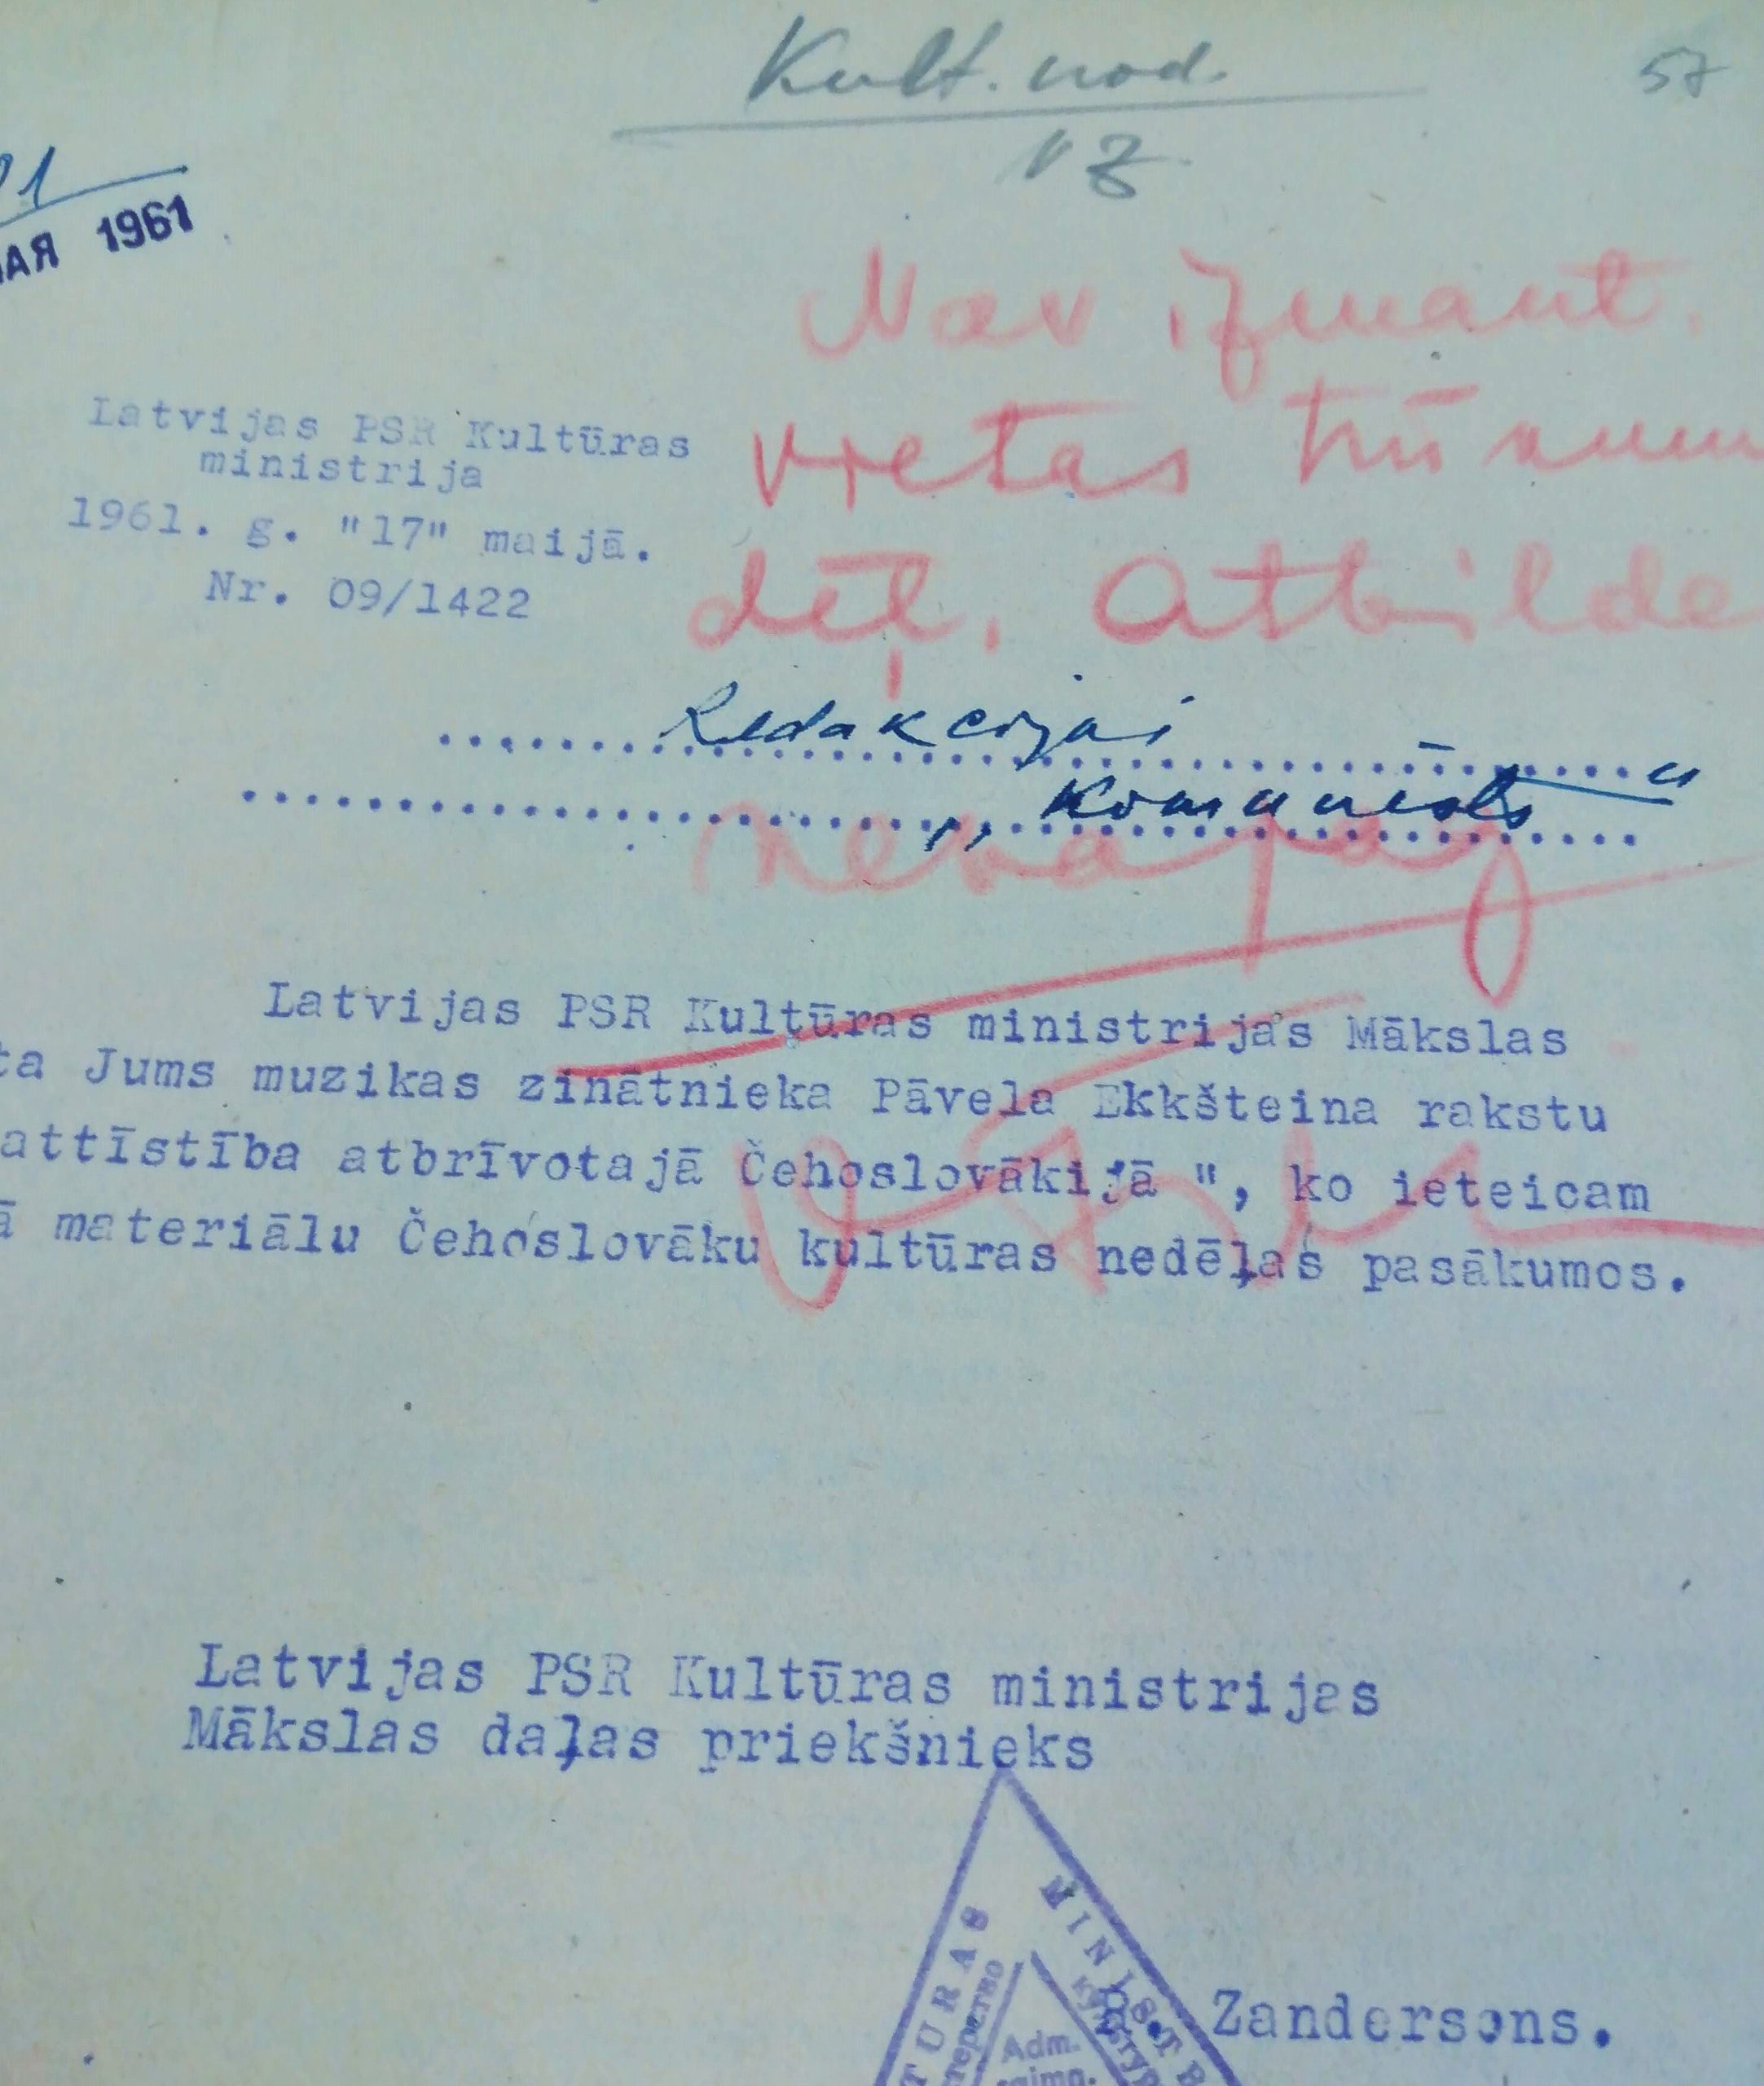 Kult. nod.
57
АЯ 1961
Nav izmant.
vietas trūkum
dēļ. Atbilde
nevajag
Latvijas PSR Kultūras
ministrija
1961. g. "17" maijā.
Nr. 09/1422
Redakcijai
„Komunists"
Latvijas PSR Kultūras ministrijas Mākslas
ta Jums muzikas zinātnieka Pāvela Ekkšteina rakstu
attīstība atbrīvotajā Čehoslovākijā ", ko ieteicam
ā materiālu Čehoslovāku kultūras nedēļas pasākumos.
Latvijas PSR Kultūras ministrijas
Mākslas daļas priekšnieks
Zandersons.
TURAS
MINIST
Adm.